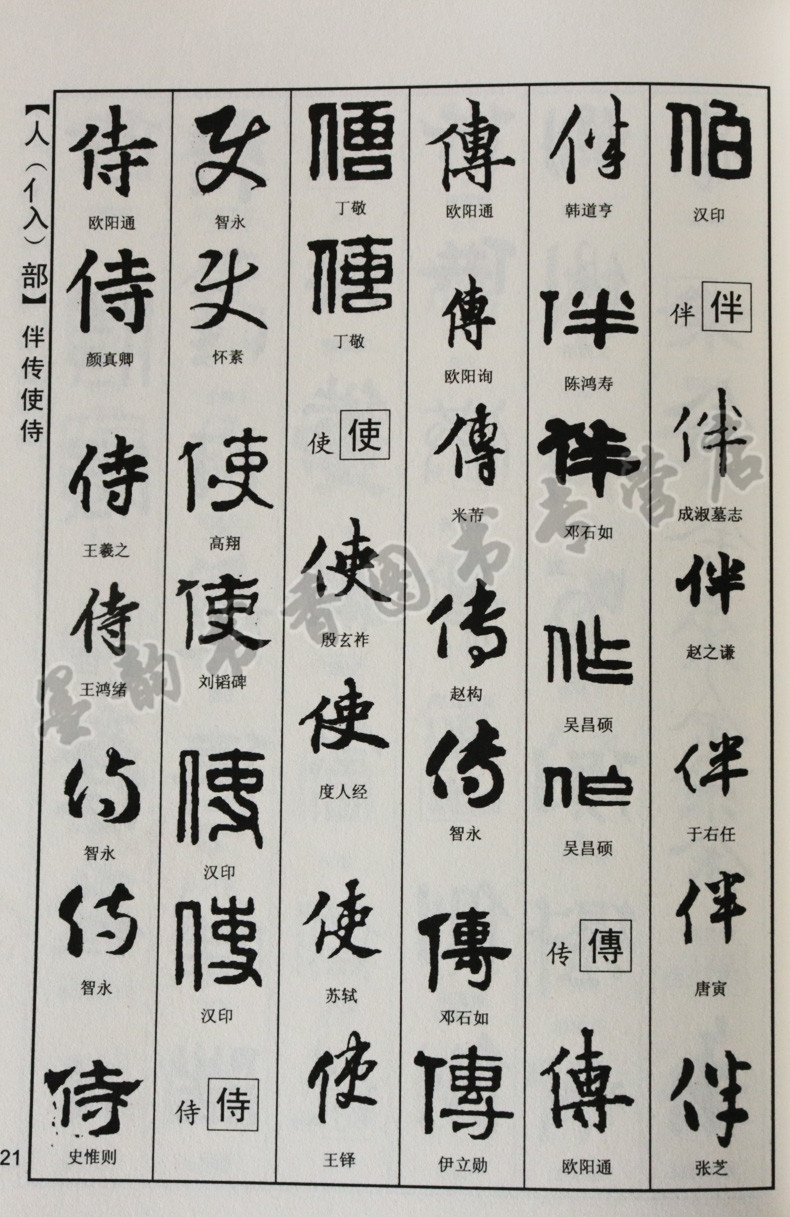 【人（亻入）部】 伴传使侍
伯
汉印
伴 伴
伴
成淑墓志
伴
赵之谦
伴
于右任
伴
唐寅
伴
张芝
伴
韩道亨
伴
陈鸿寿
伴
邓石如
吴昌硕
吴昌硕
传 傳
傳
欧阳通
傳
欧阳通
傳
欧阳询
傳
米芾
传
赵构
传
智永
傳
邓石如
傳
伊立勋
丁敬
丁敬
使 使
使
殷玄祚
使
度人经
使
苏轼
使
王铎
智永
怀素
使
高翔
使
刘韬碑
使
汉印
使
汉印
侍 侍
侍
欧阳通
侍
颜真卿
侍
王羲之
侍
王鸿绪
侍
智永
侍
智永
侍
史惟则
21
墨韵书香图书专营店